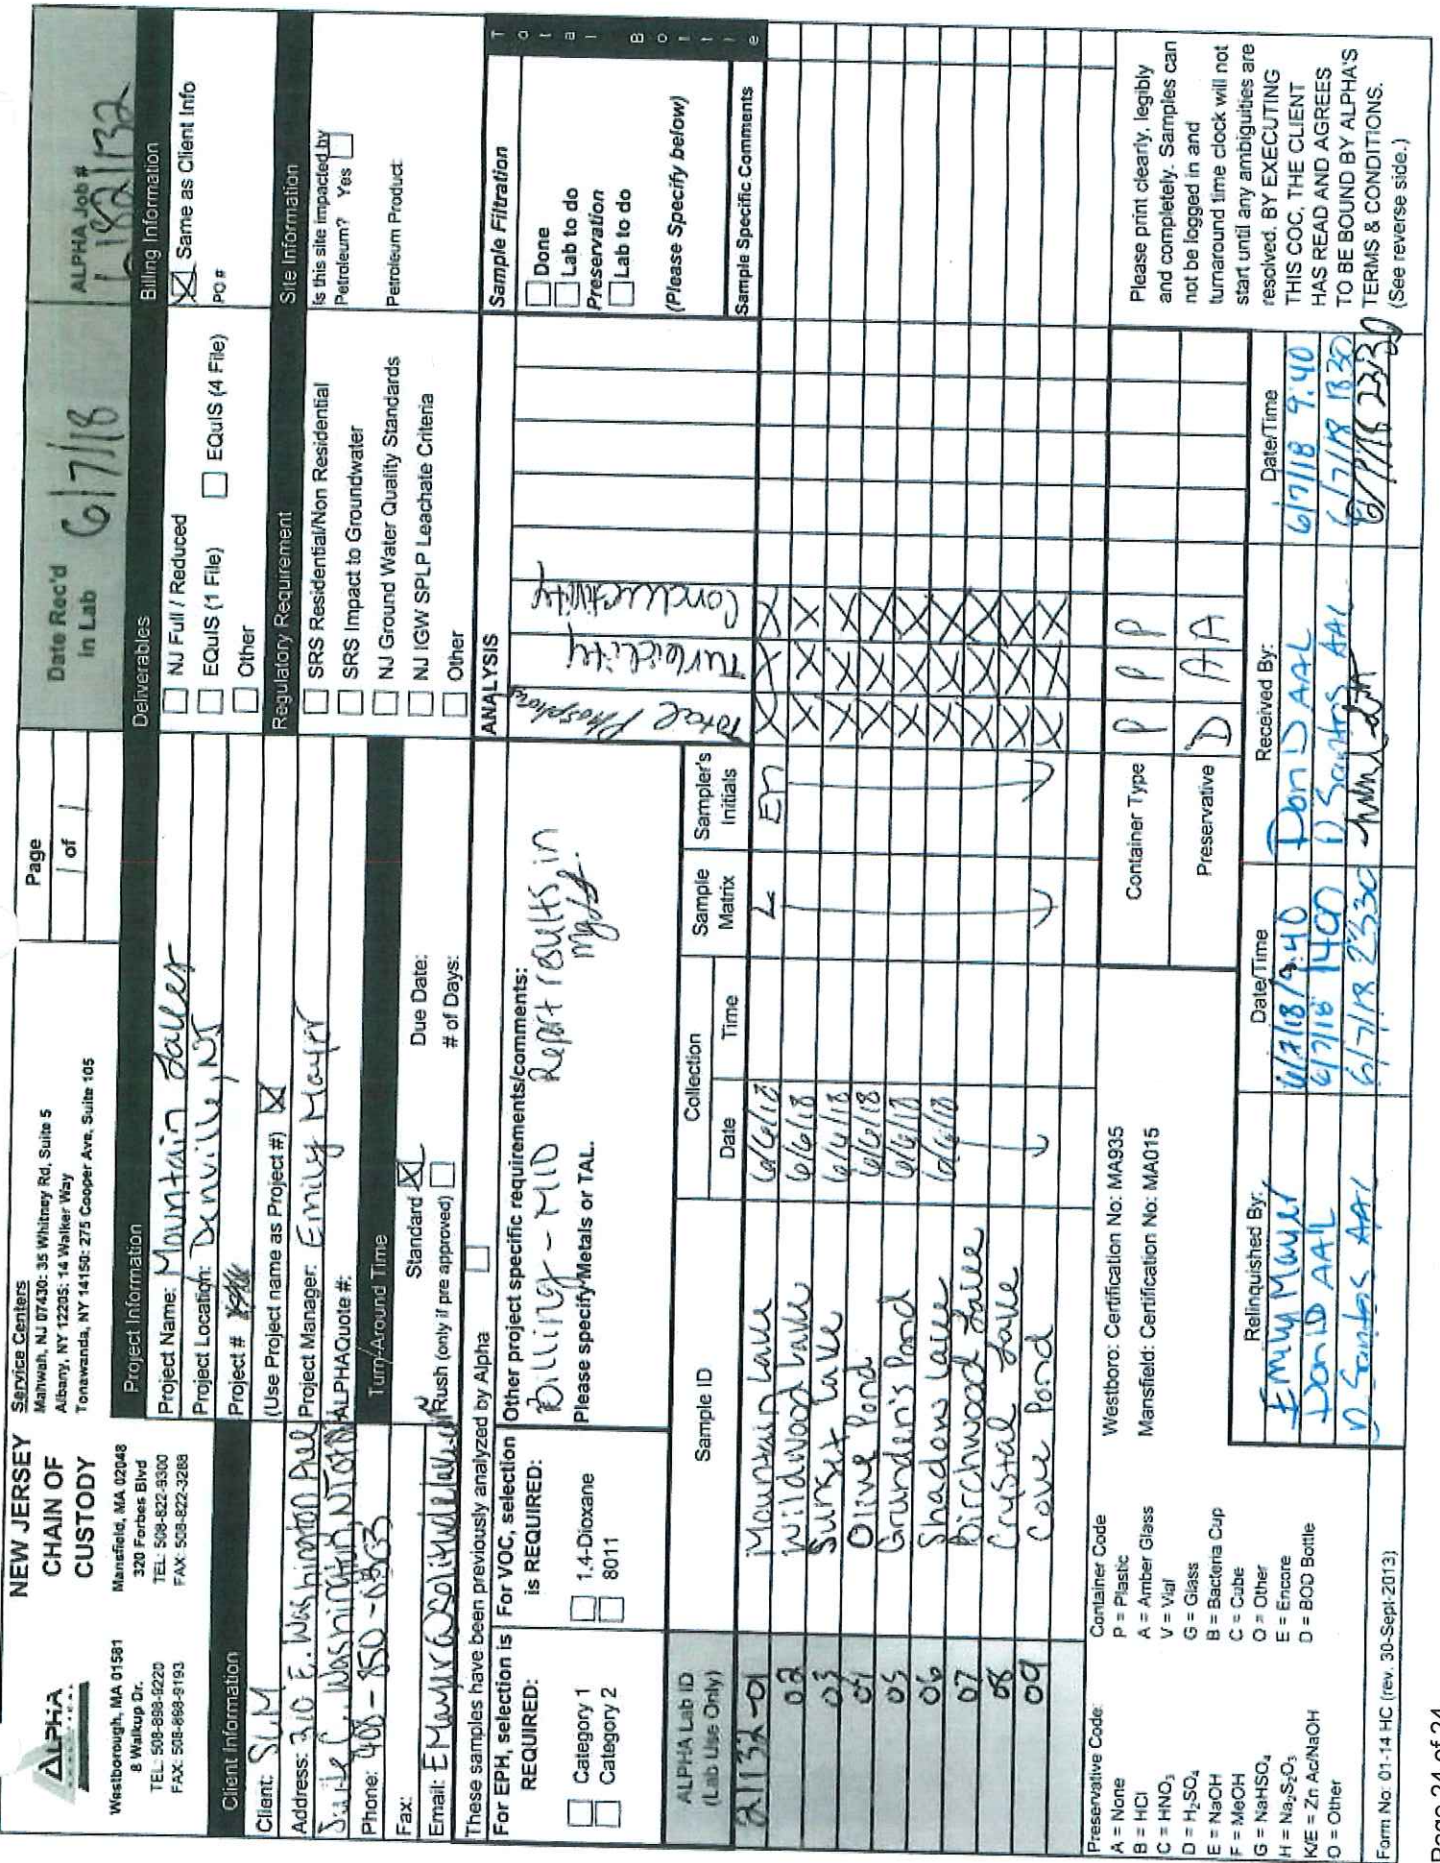 NEW JERSEY
CHAIN OF
CUSTODY
ALPHA
Westborough, MA 01581
8 Walkup Dr.
TEL: 508-898-9220
FAX: 508-898-9193
Mansfield, MA 02048
320 Forbes Blvd
TEL: 508-822-9300
FAX: 508-822-3288
Service Centers
Mahwah, NJ 07430: 35 Whitney Rd, Suite 5
Albany, NY 12205: 14 Walker Way
Tonawanda, NY 14150: 275 Cooper Ave, Suite 105
Page
1 of 1
Date Rec'd
in Lab
6/7/18
ALPHA Job#
Client Information
Client: SLM
Address: 310 E. Washington Ave
Suite C, Washington, NJ
Phone: 908-850-0303
Fax:
Email:
Project Information
Project Name: Mountain Lakes
Project Location: Denville, NJ
Project #
(Use Project name as Project #) X
Project Manager: Emily Mayer
ALPHAQuote #:
Turn-Around Time
Standard X
Due Date:
Rush (only if pre approved)
# of Days:
Deliverables
NJ Full / Reduced
EQuIS (1 File)
EQuIS (4 File)
Other
Regulatory Requirement
SRS Residential/Non Residential
SRS Impact to Groundwater
NJ Ground Water Quality Standards
NJ IGW SPLP Leachate Criteria
Other
Billing Information
X Same as Client Info
PO #
Site Information
Is this site impacted by
Petroleum? Yes
Petroleum Product:
These samples have been previously analyzed by Alpha
For EPH, selection is
REQUIRED:
Category 1
Category 2
For VOC, selection
is REQUIRED:
1,4-Dioxane
8011
Other project specific requirements/comments:
Billing - MID Report results in
mg/L.
Please specify Metals or TAL.
ANALYSIS
Total Phosphorus
Turbidity
Conductivity
Sample Filtration
Done
Lab to do
Preservation
Lab to do
(Please Specify below)
Total Bottle
ALPHA Lab ID
(Lab Use Only)
Sample ID
Collection
Date
Time
Sample
Matrix
Sampler's
Initials
Sample Specific Comments
21132-01 Mountain Lake 6/6/18 L EM X X X
02 Wildwood Lake 6/6/18 X X X
03 Sunset Lake 6/6/18 X X X
04 Olive Pond 6/6/18 X X X
05 Grunden's Pond 6/6/18 X X X
06 Shadow Lake 6/6/18 X X X
07 Birchwood Lake X X X
08 Crystal Lake X X X
09 Cove Pond X X X
Preservative Code:
A = None
B = HCl
C = HNO3
D = H2SO4
E = NaOH
F = MeOH
G = NaHSO4
H = Na2S2O3
K/E = Zn Ac/NaOH
O = Other
Container Code
P = Plastic
A = Amber Glass
V = Vial
G = Glass
B = Bacteria Cup
C = Cube
O = Other
E = Encore
D = BOD Bottle
Westboro: Certification No: MA935
Mansfield: Certification No: MA015
Container Type P P P
Preservative D A A
Please print clearly, legibly
and completely. Samples can
not be logged in and
turnaround time clock will not
start until any ambiguities are
resolved. BY EXECUTING
THIS COC, THE CLIENT
HAS READ AND AGREES
TO BE BOUND BY ALPHA'S
TERMS & CONDITIONS.
(See reverse side.)
Relinquished By:
Date/Time
Received By:
Date/Time
Emily Mayer 6/7/18 9:40 Don D AAL 6/7/18 9:40
Don D AAL 6/7/18 1400 D Santos AAL 6/7/18
D Santos AAL 6/7/18 2330
Form No: 01-14 HC (rev. 30-Sept-2013)
Page 24 of 24